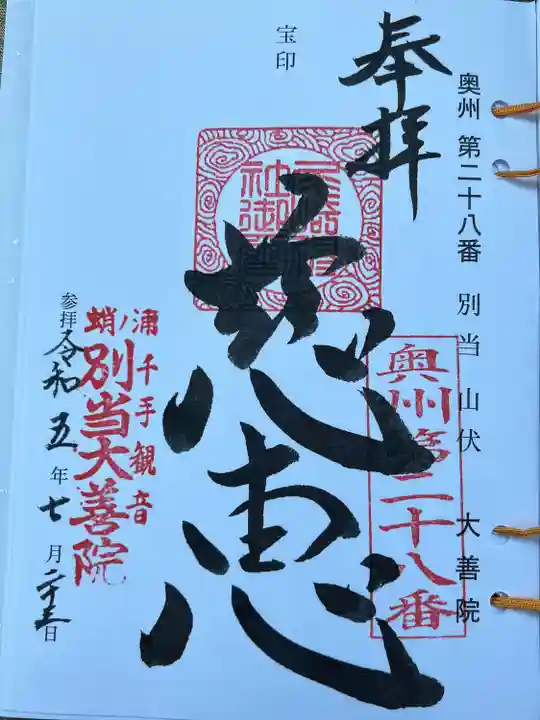 奥州 第二十八番 別当 山伏 大善院
奉拝
奥州第二十八番
宝印
慈恵
浦千手観音
蛸ノ
別当大善院
参拝 令和五年七月二十三日